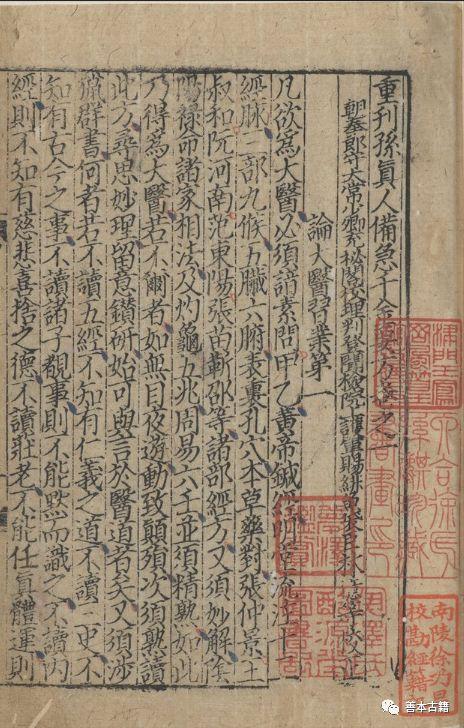 重刊孫真人備急千金要方卷之一
朝奉郎守太常少卿充秘閣校理判登聞檢院護軍賜緋魚袋臣林億等校正
論大醫習業第一
凡欲爲大醫必須諳素問甲乙黃帝鍼經明堂流注十二
經脉三部九候五臟六腑表裏孔穴本草藥對張仲景王
叔和阮河南范東陽張苗靳邵等諸部經方又須妙解陰
陽祿命諸家相法及灼龜五兆周易六壬並須精熟如此
乃得爲大醫若不爾者如無目夜遊動致顛殞次須熟讀
此方尋思妙理留意鑽研始可與言於醫道者矣又須涉
獵群書何者若不讀五經不知有仁義之道不讀三史不
知有古今之事不讀諸子覩事則不能黙而識之不讀内
經則不知有慈悲喜捨之德不讀莊老不能任真體運則
南陵徐乃昌
校勘經籍
善本古籍